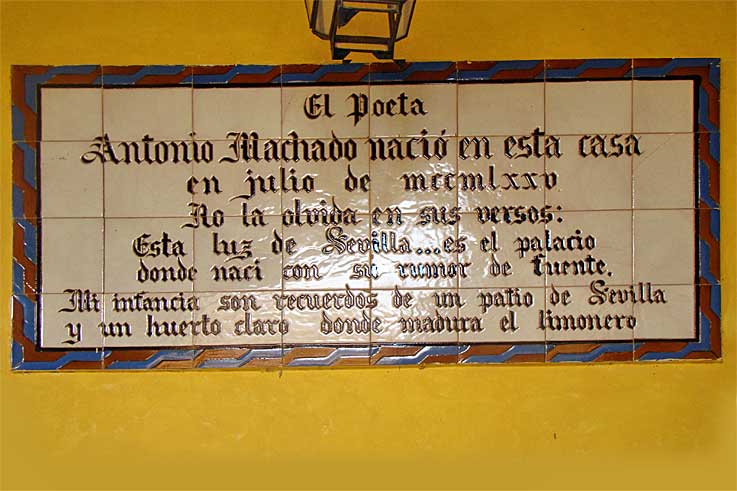 El Poeta
Antonio Machado nació en esta casa
en julio de mccmlxxv
No la olvida en sus versos:
Esta luz de Sevilla...es el palacio
donde nací con su rumor de fuente.
Mi infancia son recuerdos de un patio de Sevilla
y un huerto claro donde madura el limonero